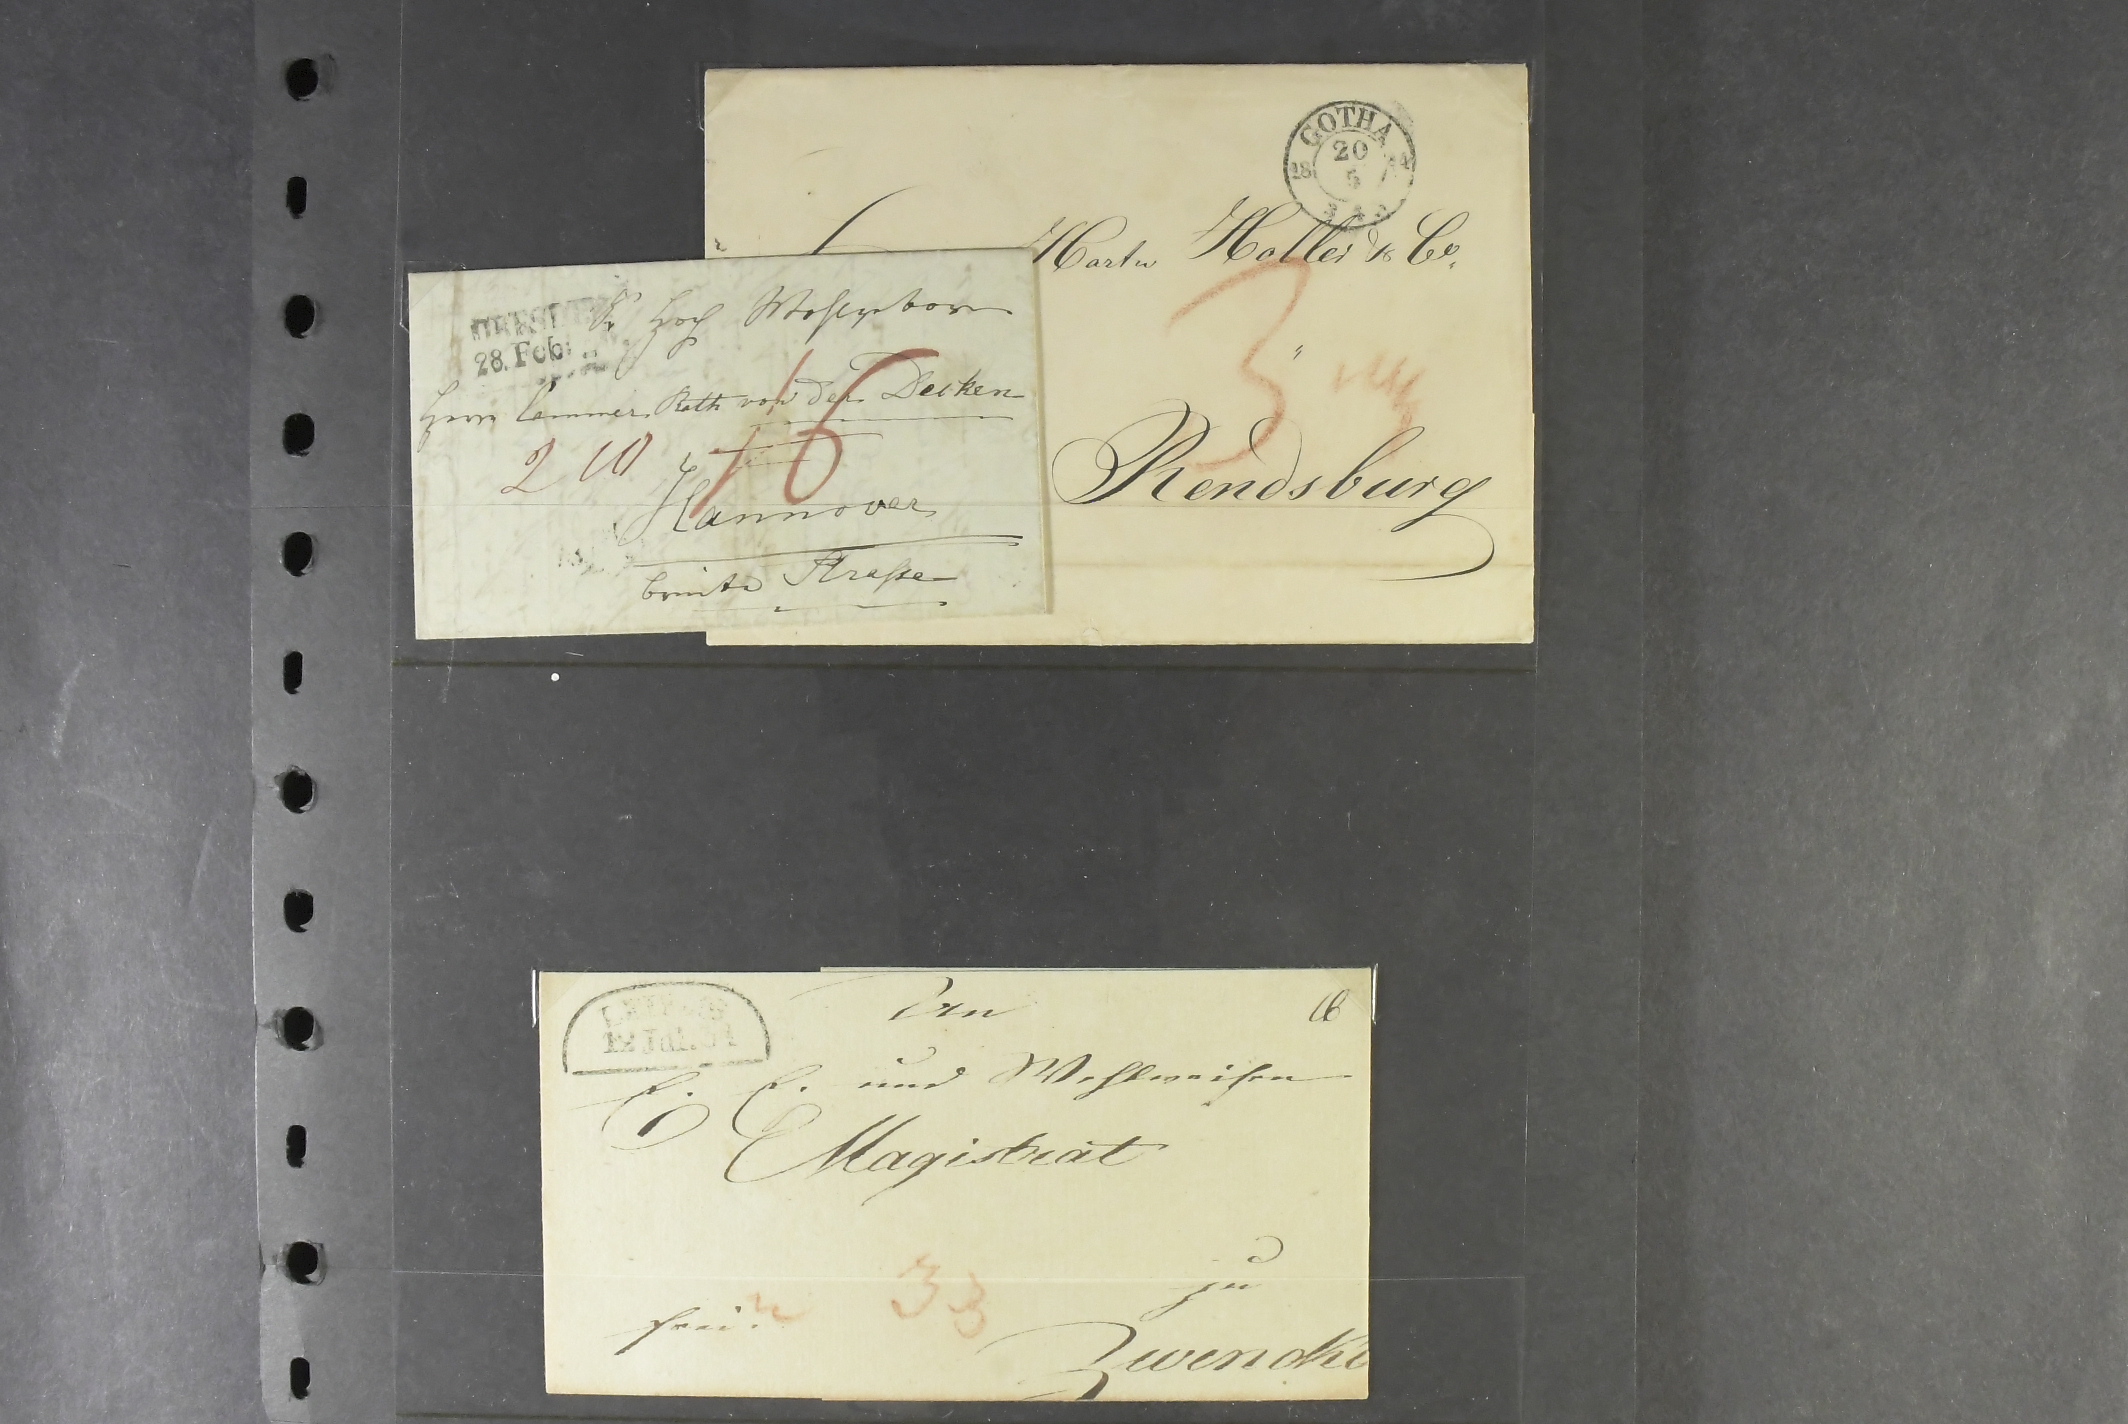 GOTHA
20
18
5
Hartw Holler & Co.
3
Rendsburg
DRESDEN
28. Feb.
Sr Hoch Wohlgeboren
Herrn Cammer Rath von der Decken
2 10
16
Hannover
breite Straße
LEIPZIG
12 Jul. 51
An
E. E. und Wohlweisen
Magistrat
zu
frei.
33
Zwencka